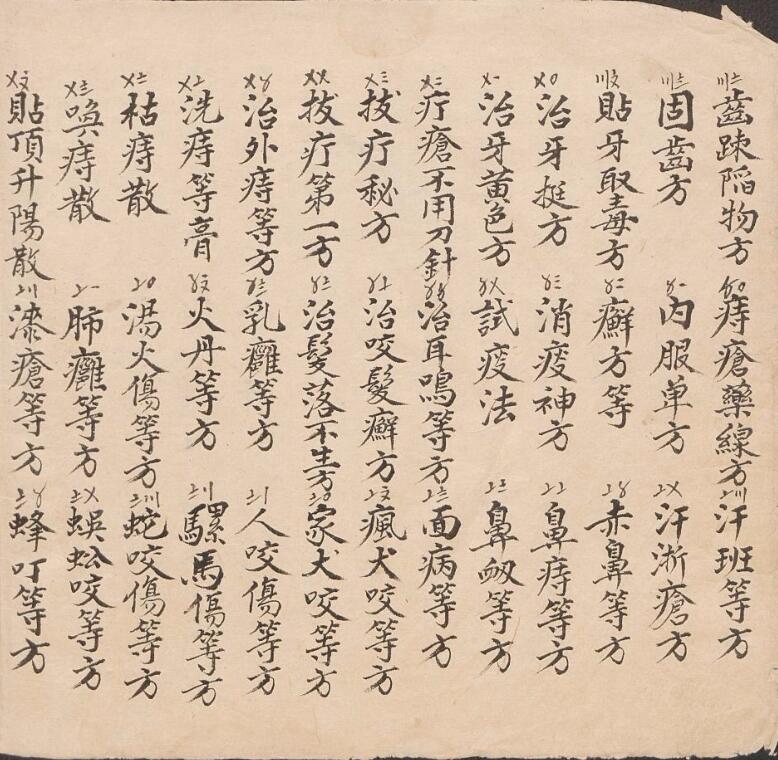 齒踈陷物方
固齒方
貼牙取毒方
治牙挺方
治牙黃色方
疔瘡不用刀針
拔疔秘方
拔疔第一方
治外痔等方
洗痔等膏
枯痔散
喚痔散
貼頂升陽散
痔瘡藥線方
內服单方
癬方等
消疫神方
試疫法
治耳鳴等方
治咬髮癬方
治髮落不生方
乳癰等方
火丹等方
湯火傷等方
肺癰等方
漆瘡等方
汗班等方
汗淅瘡方
赤鼻等方
鼻痔等方
鼻衂等方
面病等方
瘋犬咬等方
家犬咬等方
人咬傷等方
騾馬傷等方
蛇咬傷等方
蜈蚣咬等方
蜂叮等方